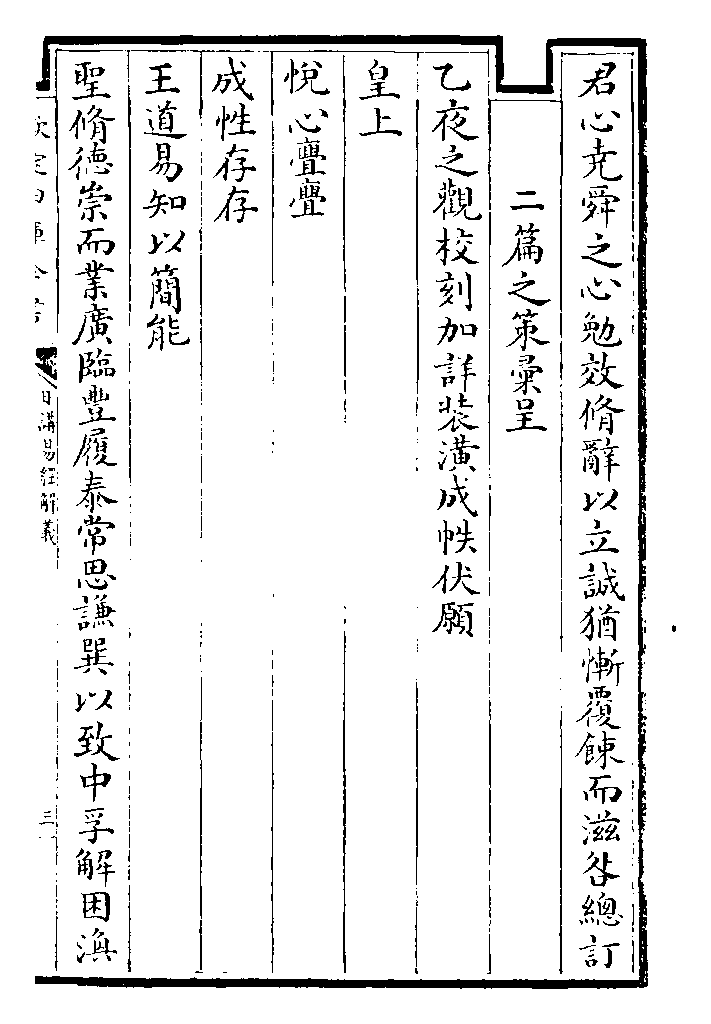 君心尭舜之心勉效脩辭以立誠猶慚覆餗而滋咎總訂
二篇之策彚呈
乙夜之觀校刻加詳装潢成帙伏願
皇上
悅心亹亹
成性存存
王道易知以簡能
聖脩德崇而業廣臨豐履泰常思謙巽以致中孚解困渙
日講易經解義
三